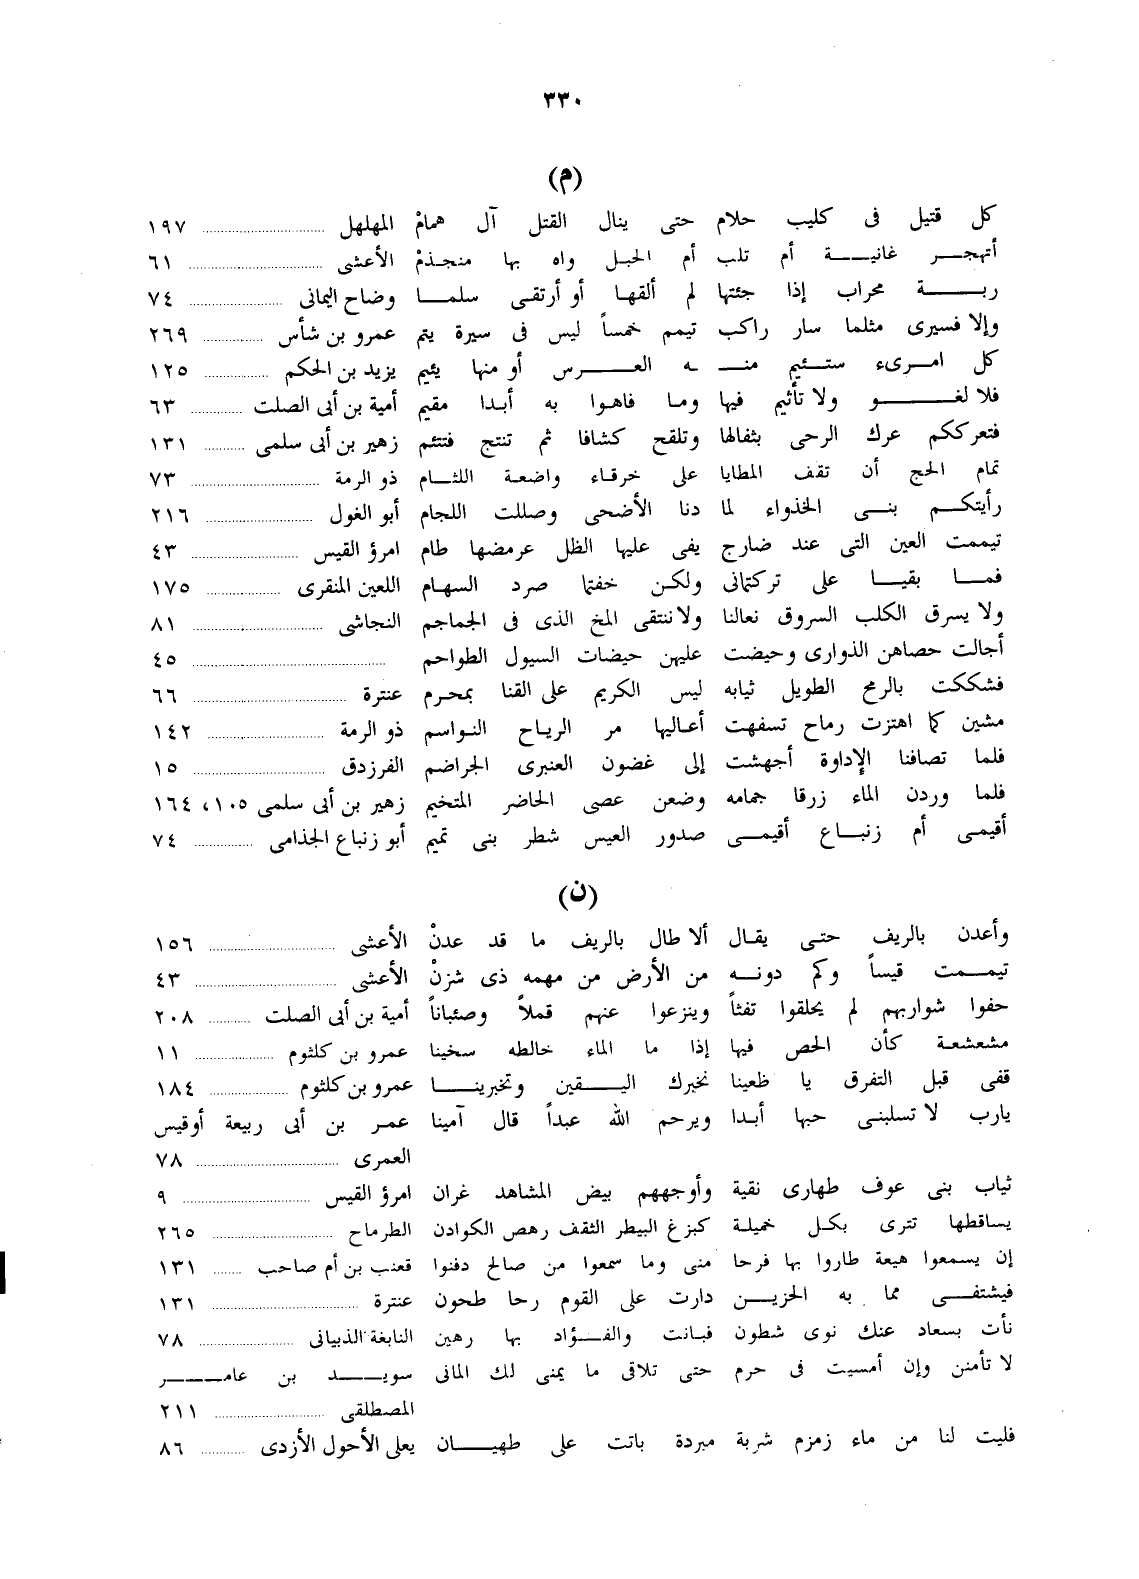 ٣٣٠
(م)
كل قتيل فى كليب حلام حتى ينال القتل آل همامْ المهلهل ........ ١٩٧
أتهجر غانية أم تلب أم الحبل واه بها منجذمْ الأعشى ........ ٦١
ربة محراب إذا جئتها لم ألقها أو أرتقى سلما وضاح اليمانى ........ ٧٤
وإلا فسيرى مثلما سار راكب تيمم خمساً ليس فى سيرة يتم عمرو بن شأس ........ ٢٦٩
كل امرىء ستئيم منه العرس أو منها يئيم يزيد بن الحكم ........ ١٢٥
فلا لغو ولا تأثيم فيها وما فاهوا به أبدا مقيم أمية بن أبى الصلت ........ ٦٣
فتعرككم عرك الرحى بثفالها وتلقح كشافا ثم تنتج فتتئم زهير بن أبى سلمى ........ ١٣١
تمام الحج أن تقف المطايا على خرقاء واضعة اللثام ذو الرمة ........ ٧٣
رأيتكم بنى الخذواء لما دنا الأضحى وصللت اللجام أبو الغول ........ ٢١٦
تيممت العين التى عند ضارج يفى عليها الظل عرمضها طام امرؤ القيس ........ ٤٣
فما بقيا على تركتمانى ولكن خفتما صرد السهام اللعين المنقرى ........ ١٧٥
ولا يسرق الكلب السروق نعالنا ولا ننتقى المخ الذى فى الجماجم النجاشى ........ ٨١
أجالت حصاهن الذوارى وحيضت عليهن حيضات السيول الطواحم ........ ٤٥
فشككت بالرمح الطويل ثيابه ليس الكريم على القنا بمحرم عنترة ........ ٦٦
مشين كما اهتزت رماح تسفهت أعاليها مر الرياح النواسم ذو الرمة ........ ١٤٢
فلما تصافنا الإداوة أجهشت إلى غضون العنبرى الجراضم الفرزدق ........ ١٥
فلما وردن الماء زرقا جمامه وضعن عصى الحاضر المتخيم زهير بن أبى سلمى ١٠٥، ١٦٤
أقيمى أم زنباع أقيمى صدور العيس شطر بنى تميم أبو زنباع الجذامى ........ ٧٤
(ن)
وأعدن بالريف حتى يقال ألا طال بالريف ما قد عدنْ الأعشى ........ ١٥٦
تيممت قيساً وكم دونه من الأرض من مهمه ذى شزنْ الأعشى ........ ٤٣
حفوا شواربهم لم يحلقوا تفثاً وينزعوا عنهم قملاً وصئباناً أمية بن أبى الصلت ........ ٢٠٨
مشعشعة كأن الحص فيها إذا ما الماء خالطه سخينا عمرو بن كلثوم ........ ١١
قفى قبل التفرق يا ظعينا نخبرك اليقين وتخبرينا عمرو بن كلثوم ........ ١٨٤
يارب لا تسلبنى حبها أبدا ويرحم الله عبداً قال آمينا عمر بن أبى ربيعة أوقيس
العمرى ........ ٧٨
ثياب بنى عوف طهارى نقية وأوجههم بيض المشاهد غران امرؤ القيس ........ ٩
يساقطها تترى بكل خميلة كبزغ البيطر الثقف رهص الكوادن الطرماح ........ ٢٦٥
إن يسمعوا هيعة طاروا بها فرحا منى وما سمعوا من صالح دفنوا قعنب بن أم صاحب ........ ١٣١
فيشتفى مما به الحزين دارت على القوم رحا طحون عنترة ........ ١٣١
نأت بسعاد عنك نوى شطون فبانت والفؤاد بها رهين النابغة الذبيانى ........ ٧٨
لا تأمنن وإن أمسيت فى حرم حتى تلاقى ما يمنى لك المانى سويد بن عامر
المصطلقى ........ ٢١١
فليت لنا من ماء زمزم شربة مبردة باتت على طهيان يعلى الأحول الأزدى ........ ٨٦